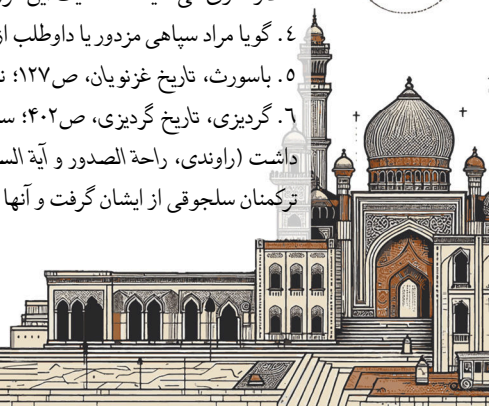 ٤. گویا مراد سپاهی مزدور یا داوطلب از
٥. باسورث، تاریخ غزنویان، ص۱۲۷؛
٦. گردیزی، تاریخ گردیزی، ص۴۰۲؛
داشت (راوندی، راحة الصدور و آیة
ترکمنان سلجوقی از ایشان گرفت و آنها